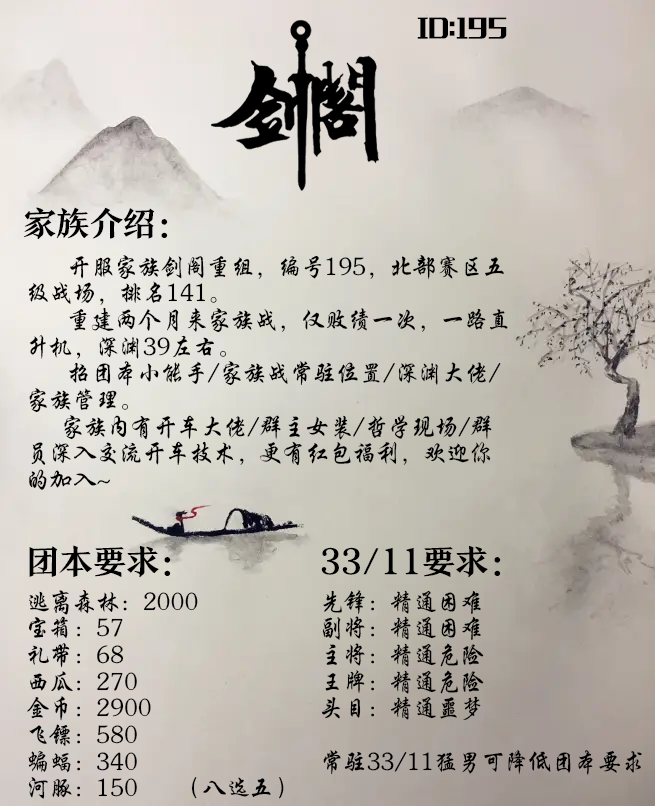 ID:195
剑阁
家族介绍：
开服家族剑阁重组，编号195，北部赛区五
级战场，排名141。
重建两个月来家族战，仅败绩一次，一路直
升机，深渊39左右。
招团本小能手/家族战常驻位置/深渊大佬/
家族管理。
家族内有开车大佬/群主女装/哲学现场/群
员深入交流开车技术，更有红包福利，欢迎你
的加入~
团本要求：
逃离森林：2000
宝箱：57
礼带：68
西瓜：270
金币：2900
飞镖：580
蝙蝠：340
河豚：150 （八选五）
33/11要求：
先锋：精通困难
副将：精通困难
主将：精通危险
王牌：精通危险
头目：精通噩梦
常驻33/11猛男可降低团本要求